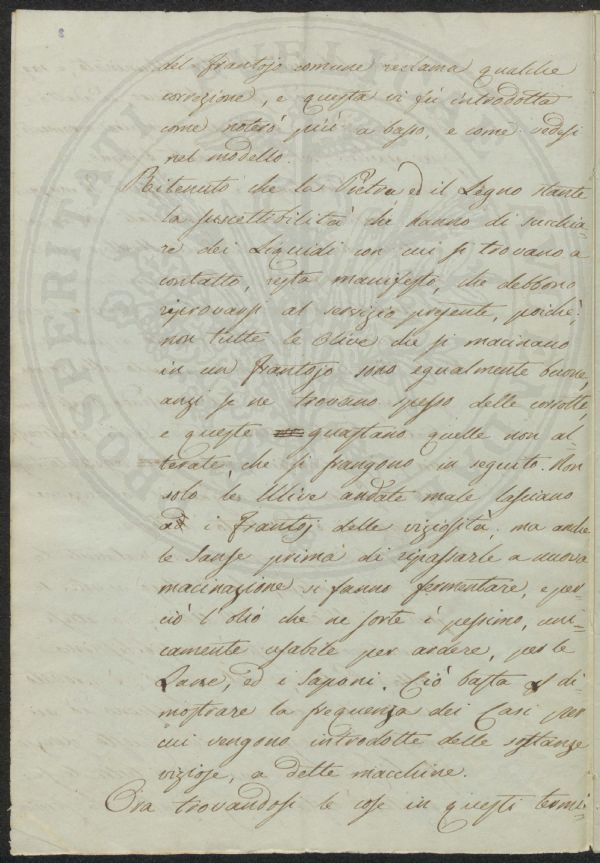 del frantojo comune reclama qualche
correzione, e questa vi fù introdotta
come noterò più a basso, e come vedesi
nel modello.
Ritenuto che la Pietra ed il Legno stante
la suscettibilità che hanno di succhia-
re dei Liquidi con cui si trovano a
contatto, resta manifesto, che debbono
riprovarsi al servizio presente, poichè
non tutte le Olive che si macinano
in un frantojo sono egualmente buone,
anzi se ne trovano spesso delle corrotte,
e queste guastano quelle non al-
terate, che si frangono in seguito. Non
solo le Ulive andate male lasciano
ad i frantoj delle viziosità, ma anche
le Sanse prima di ripassarle a nuova
macinazione si fanno fermentare, e per-
ciò l'olio che ne sorte è pessimo, uni-
camente usabile per ardere, per le
Lane, ed i Saponi. Ciò basta a di-
mostrare la frequenza dei Casi per
cui vengono introdotte delle sostanze
viziose, a dette macchine.
Ora trovandosi le cose in questi termi-
PROSPERITATI PUBLICAE AUGENDAE